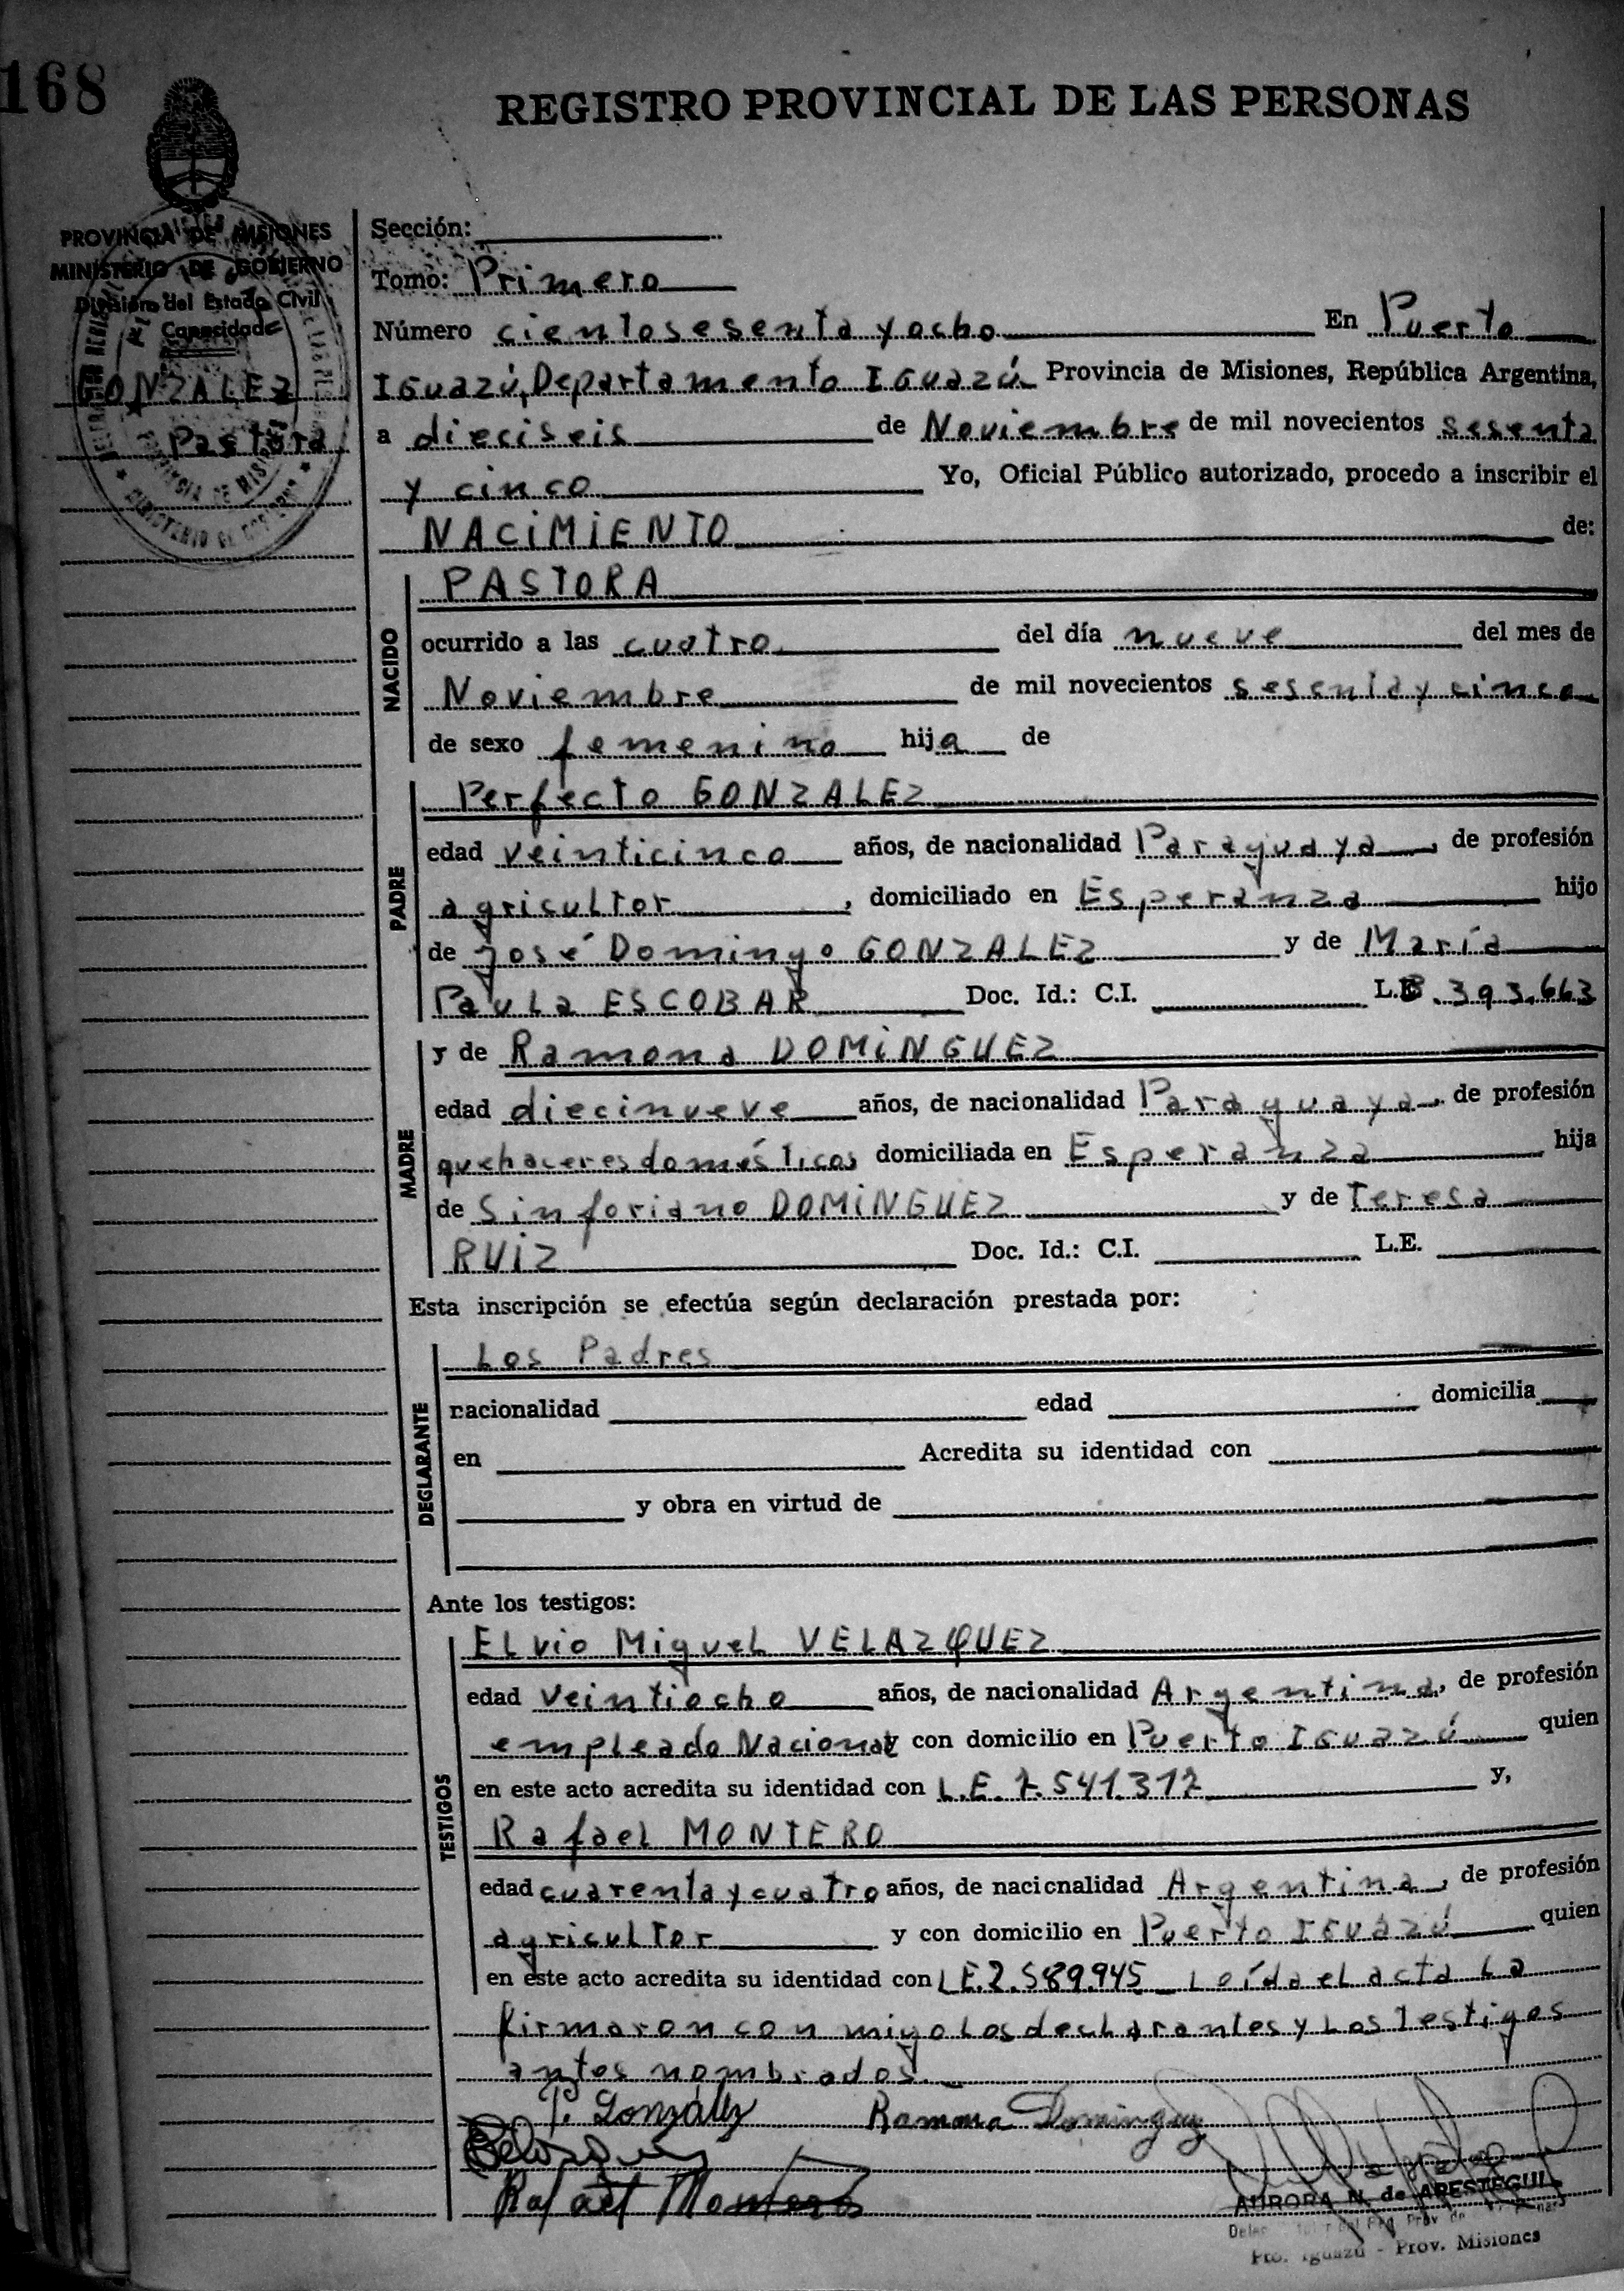 168
REGISTRO PROVINCIAL DE LAS PERSONAS
PROVINCIA DE MISIONES
MINISTERIO DE GOBIERNO
División del Estado Civil
Capacidad
GONZALEZ
Pastora
Sección:
Tomo: Primero
Número cientosesenta y ocho En Puerto
Iguazú, Departamento Iguazú Provincia de Misiones, República Argentina,
a dieciseis de Noviembre de mil novecientos sesenta
y cinco Yo, Oficial Público autorizado, procedo a inscribir el
NACIMIENTO de:
NACIDO
PASTORA
ocurrido a las cuatro del día nueve del mes de
Noviembre de mil novecientos sesenta y cinco
de sexo femenino hija de
PADRE
Perfecto GONZALEZ
edad veinticinco años, de nacionalidad Paraguaya, de profesión
agricultor, domiciliado en Esperanza hijo
de José Domingo GONZALEZ y de María
Paula ESCOBAR Doc. Id.: C.I. L.E. 393.663
MADRE
y de Ramona DOMINGUEZ
edad diecinueve años, de nacionalidad Paraguaya, de profesión
quehaceres domésticos domiciliada en Esperanza hija
de Sinforiano DOMINGUEZ y de Teresa
RUIZ Doc. Id.: C.I. L.E.
Esta inscripción se efectúa según declaración prestada por:
DECLARANTE
Los Padres
nacionalidad edad domicilia
en Acredita su identidad con
y obra en virtud de
Ante los testigos:
TESTIGOS
Elvio Miguel VELAZQUEZ
edad veintiocho años, de nacionalidad Argentina, de profesión
empleado Nacional y con domicilio en Puerto Iguazú quien
en este acto acredita su identidad con L.E. 7.541.312 y,
Rafael MONTERO
edad cuarenta y cuatro años, de nacionalidad Argentina, de profesión
agricultor y con domicilio en Puerto Iguazú quien
en este acto acredita su identidad con L.E. 2.589.945 Leída el acta la
firmaron con migo los declarantes y los testigos
antes nombrados.
P. González Ramona Dominguez
Rafael Montero
AURORA N. de ARESTEGUI
Pto. Iguazú - Prov. Misiones